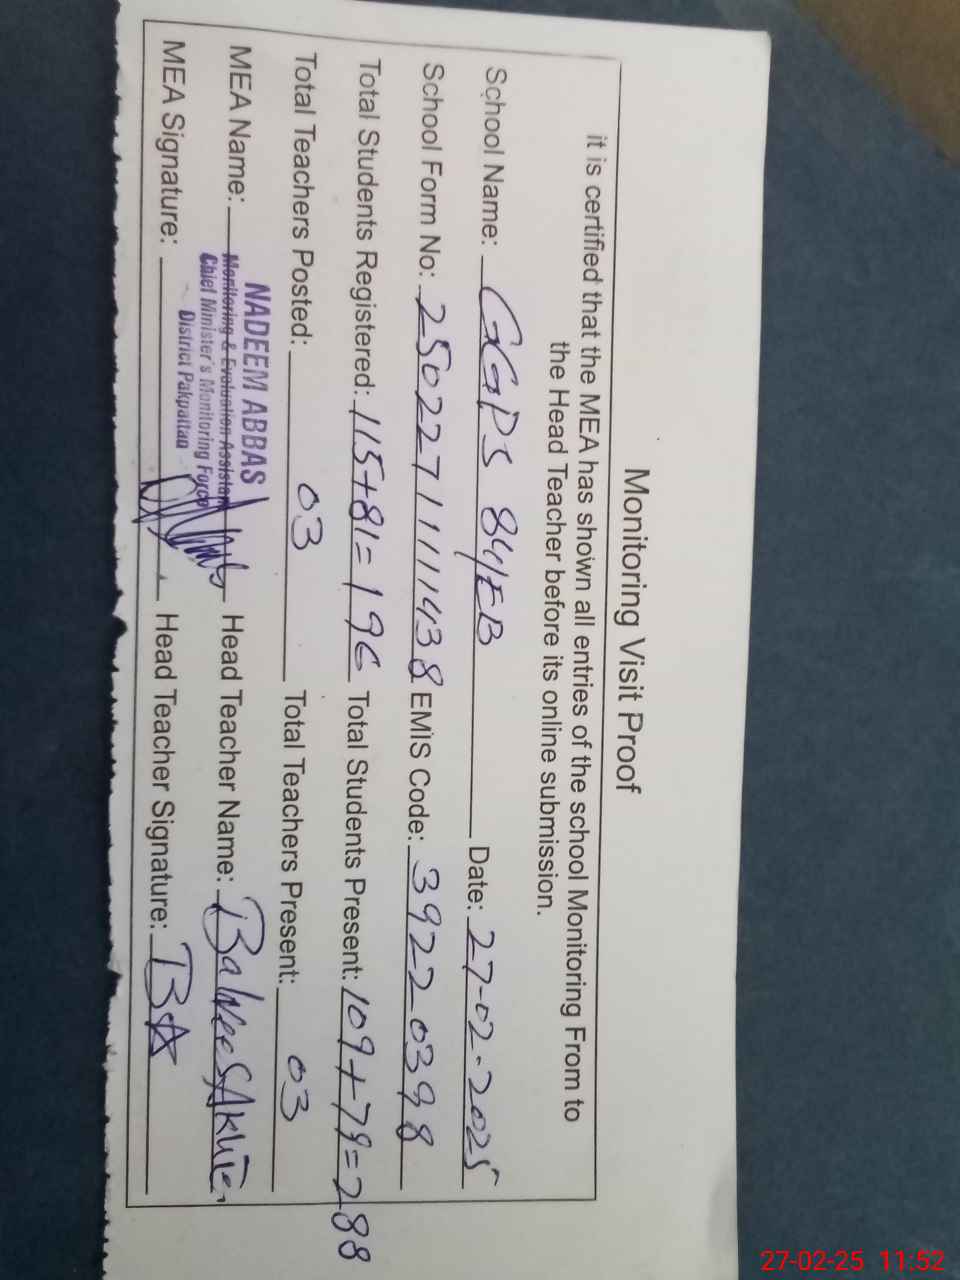 Monitoring Visit Proof
it is certified that the MEA has shown all entries of the school Monitoring From to
the Head Teacher before its online submission.
School Name: GGPS 84/EB Date: 27-02-2025
School Form No: 25022711111438 EMIS Code: 39220398
Total Students Registered: 115+81=196 Total Students Present: 109+79=288
Total Teachers Posted: 03 Total Teachers Present: 03
MEA Name: NADEEM ABBAS Head Teacher Name: Balqees Akhter
Monitoring & Evaluation Assistant
Chief Minister's Monitoring Force
District Pakpattan
MEA Signature: Head Teacher Signature: BA
27-02-25 11:52